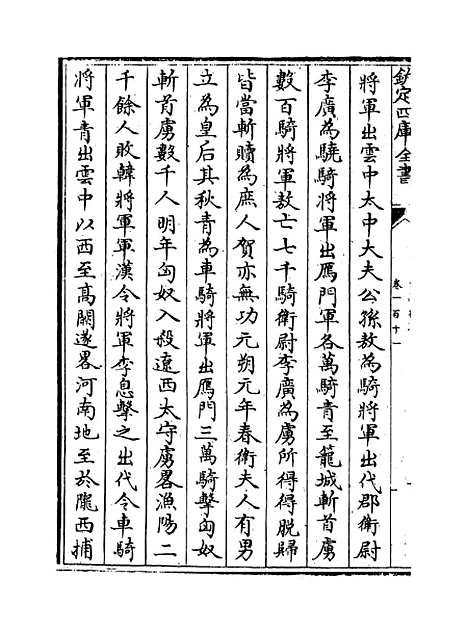 欽定四庫全書
卷一百十一
將軍出雲中太中大夫公孫敖為騎將軍出代郡衛尉
李廣為驍騎將軍出鴈門軍各萬騎青至蘢城斬首虜
數百騎將軍敖亡七千騎衛尉李廣為虜所得得脫歸
皆當斬贖為庶人賀亦無功元朔元年春衛夫人有男
立為皇后其秋青為車騎將軍出鴈門三萬騎擊匈奴
斬首虜數千人明年匈奴入殺遼西太守虜畧漁陽二
千餘人敗韓將軍軍漢令將軍李息擊之出代令車騎
將軍青出雲中以西至髙闕遂畧河南地至於隴西捕